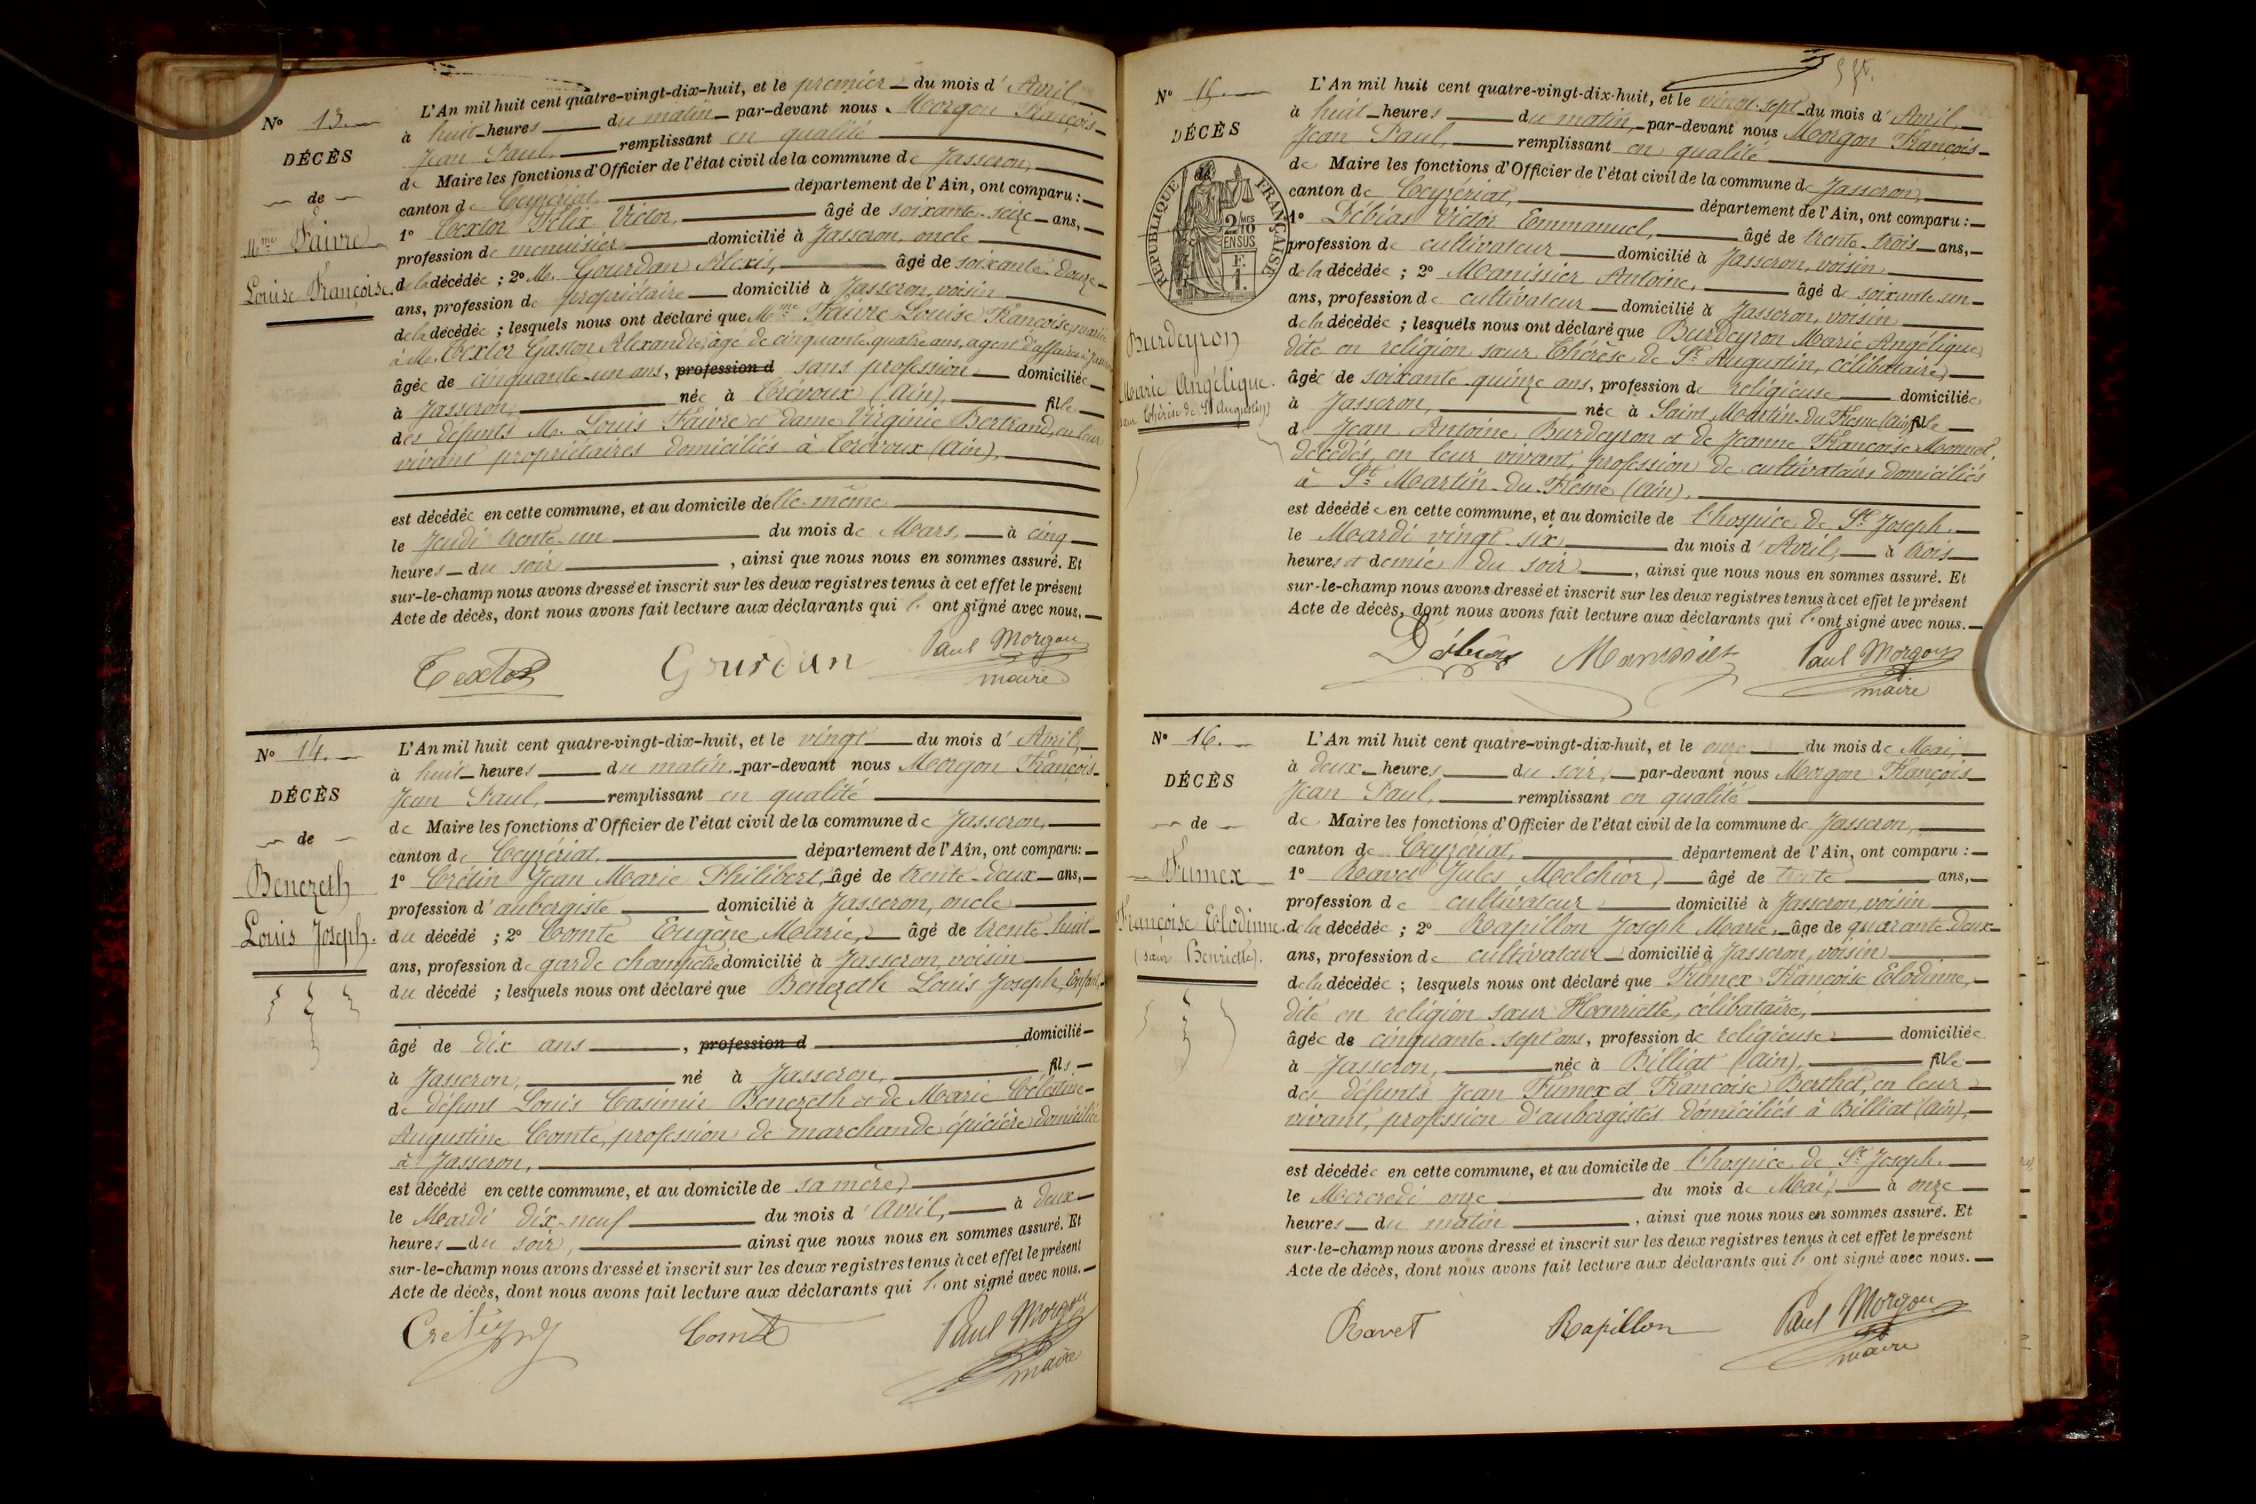 N° 13.
DÉCÈS
de
Mme Faivre
Louise Françoise.
L'An mil huit cent quatre-vingt-dix-huit, et le premier du mois d'Avril,
à huit heures du matin par-devant nous Morgon François
Jean Paul, remplissant en qualité
de Maire les fonctions d'Officier de l'état civil de la commune de Jasseron,
canton de Ceyzériat, département de l'Ain, ont comparu :
1° Textor Félix Victor, âgé de soixante-seize ans,
profession de menuisier domicilié à Jasseron, oncle
de la décédée ; 2° M. Gourdan Alexis, âgé de soixante-douze
ans, profession de propriétaire domicilié à Jasseron, voisin
de la décédée ; lesquels nous ont déclaré que Mme Faivre Louise Françoise, mariée
à M. Textor Gaston Alexandre, âgé de cinquante-quatre ans, agent d'affaires à
âgée de cinquante-un ans, profession d sans profession domiciliée
à Jasseron, née à Trévoux (Ain), fille
des défunts M. Louis Faivre et dame Virginie Bertrand, en leur
vivant propriétaires domiciliés à Trévoux (Ain).
est décédée en cette commune, et au domicile d'elle-même
le Jeudi trente-un du mois de Mars, à cinq
heures du soir, ainsi que nous nous en sommes assuré. Et
sur-le-champ nous avons dressé et inscrit sur les deux registres tenus à cet effet le présent
Acte de décès, dont nous avons fait lecture aux déclarants qui l'ont signé avec nous.
Textor Gourdan Paul Morgon
maire
N° 14.
DÉCÈS
de
Benezeth
Louis Joseph.
L'An mil huit cent quatre-vingt-dix-huit, et le vingt du mois d'Avril,
à huit heures du matin, par-devant nous Morgon François
Jean Paul, remplissant en qualité
de Maire les fonctions d'Officier de l'état civil de la commune de Jasseron,
canton de Ceyzériat, département de l'Ain, ont comparu:
1° Crétin Jean Marie Philibert, âgé de trente-deux ans,
profession d'aubergiste domicilié à Jasseron, oncle
du décédé ; 2° Comte Eugène Marie, âgé de trente-huit
ans, profession de garde champêtre domicilié à Jasseron, voisin
du décédé ; lesquels nous ont déclaré que Benezeth Louis Joseph, Enfant,
âgé de dix ans, profession d domicilié
à Jasseron, né à Jasseron, fils
de défunt Louis Casimir Benezeth et de Marie Célestine
Augustine Comte, profession de marchande épicière domiciliée
à Jasseron,
est décédé en cette commune, et au domicile de sa mère,
le Mardi dix-neuf du mois d'Avril, à deux
heures du soir, ainsi que nous nous en sommes assuré. Et
sur-le-champ nous avons dressé et inscrit sur les deux registres tenus à cet effet le présent
Acte de décès, dont nous avons fait lecture aux déclarants qui l'ont signé avec nous.
Comte Paul Morgon
maire
N° 15.
DÉCÈS
RÉPUBLIQUE FRANÇAISE
2/10 EN SUS
F.
1.
Burdeyron
Marie Angélique.
sœur Thérèse de St Augustin)
L'An mil huit cent quatre-vingt-dix-huit, et le vingt-sept du mois d'Avril,
à huit heures du matin, par-devant nous Morgon François
Jean Paul, remplissant en qualité
de Maire les fonctions d'Officier de l'état civil de la commune de Jasseron,
canton de Ceyzériat, département de l'Ain, ont comparu :
1° Débias Victor Emmanuel, âgé de trente-trois ans,
profession de cultivateur domicilié à Jasseron, voisin
de la décédée ; 2° Manissier Antoine, âgé de soixante-un
ans, profession de cultivateur domicilié à Jasseron, voisin
de la décédée ; lesquels nous ont déclaré que Burdeyron Marie Angélique,
dite en religion sœur Thérèse de St Augustin, célibataire,
âgée de soixante-quinze ans, profession de religieuse domiciliée
à Jasseron, née à Saint Martin-du-Fresne (Ain) fille
de Jean Antoine Burdeyron et de Jeanne Françoise Monnet,
décédés, en leur vivant, profession de cultivateurs domiciliés
à St Martin-du-Fresne (Ain).
est décédée en cette commune, et au domicile de l'hospice de St Joseph.
le Mardi vingt-six du mois d'Avril, à trois
heures et demie du soir, ainsi que nous nous en sommes assuré. Et
sur-le-champ nous avons dressé et inscrit sur les deux registres tenus à cet effet le présent
Acte de décès, dont nous avons fait lecture aux déclarants qui l'ont signé avec nous.
Débias Manissier Paul Morgon
maire
N° 16.
DÉCÈS
de
Fumex
Françoise Elodinne.
(sœur Henriette).
L'An mil huit cent quatre-vingt-dix-huit, et le onze du mois de Mai,
à deux heures du soir, par-devant nous Morgon François
Jean Paul, remplissant en qualité
de Maire les fonctions d'Officier de l'état civil de la commune de Jasseron,
canton de Ceyzériat, département de l'Ain, ont comparu :
1° Ravet Jules Melchior, âgé de trente ans,
profession de cultivateur domicilié à Jasseron, voisin
de la décédée ; 2° Rapillon Joseph Marie, âgé de quarante-deux
ans, profession de cultivateur domicilié à Jasseron, voisin
de la décédée ; lesquels nous ont déclaré que Fumex Françoise Elodinne,
dite en religion sœur Henriette, célibataire,
âgée de cinquante-sept ans, profession de religieuse domiciliée
à Jasseron, née à Billiat (Ain), fille
des défunts Jean Fumex et Françoise Berthet, en leur
vivant, profession d'aubergistes domiciliés à Billiat (Ain),
est décédée en cette commune, et au domicile de l'hospice de St Joseph.
le Mercredi onze du mois de Mai, à onze
heures du matin, ainsi que nous nous en sommes assuré. Et
sur-le-champ nous avons dressé et inscrit sur les deux registres tenus à cet effet le présent
Acte de décès, dont nous avons fait lecture aux déclarants qui l'ont signé avec nous.
Ravet Rapillon Paul Morgon
maire